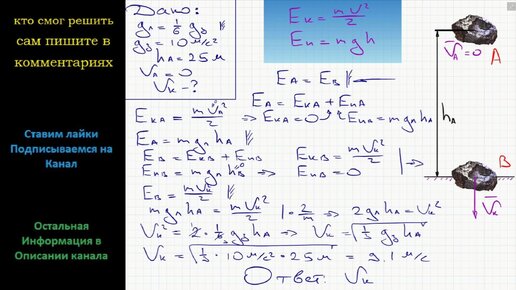 кто смог решить
сам пишите в
комментариях
Ставим лайки
Подписываемся на
Канал
Остальная
Информация в
Описании канала
Дано:
gл = 1/6 gз
gз = 10 м/с²
hA = 25 м
VA = 0
Vк - ?
Eк = mV²/2
Eп = mgh
EA = EB
EA = EкA + EпA
EкA = mVA²/2 ⇒ EкA = 0 EпA = mgлhA
EA = mgлhA
EB = EкB + EпB
EпB = mgлhB
EкB = mVк²/2
EпB = 0
EB = mVк²/2
mgлhA = mVк²/2 | · 2/m ⇒ 2gлhA = Vк²
Vк² = 2 · 1/6 gзhA ⇒ Vк = √(1/3 gзhA)
Vк = √(1/3 · 10 м/с² · 25 м) = 9,1 м/с
Ответ: Vк
VA = 0
A
hA
B
Vк